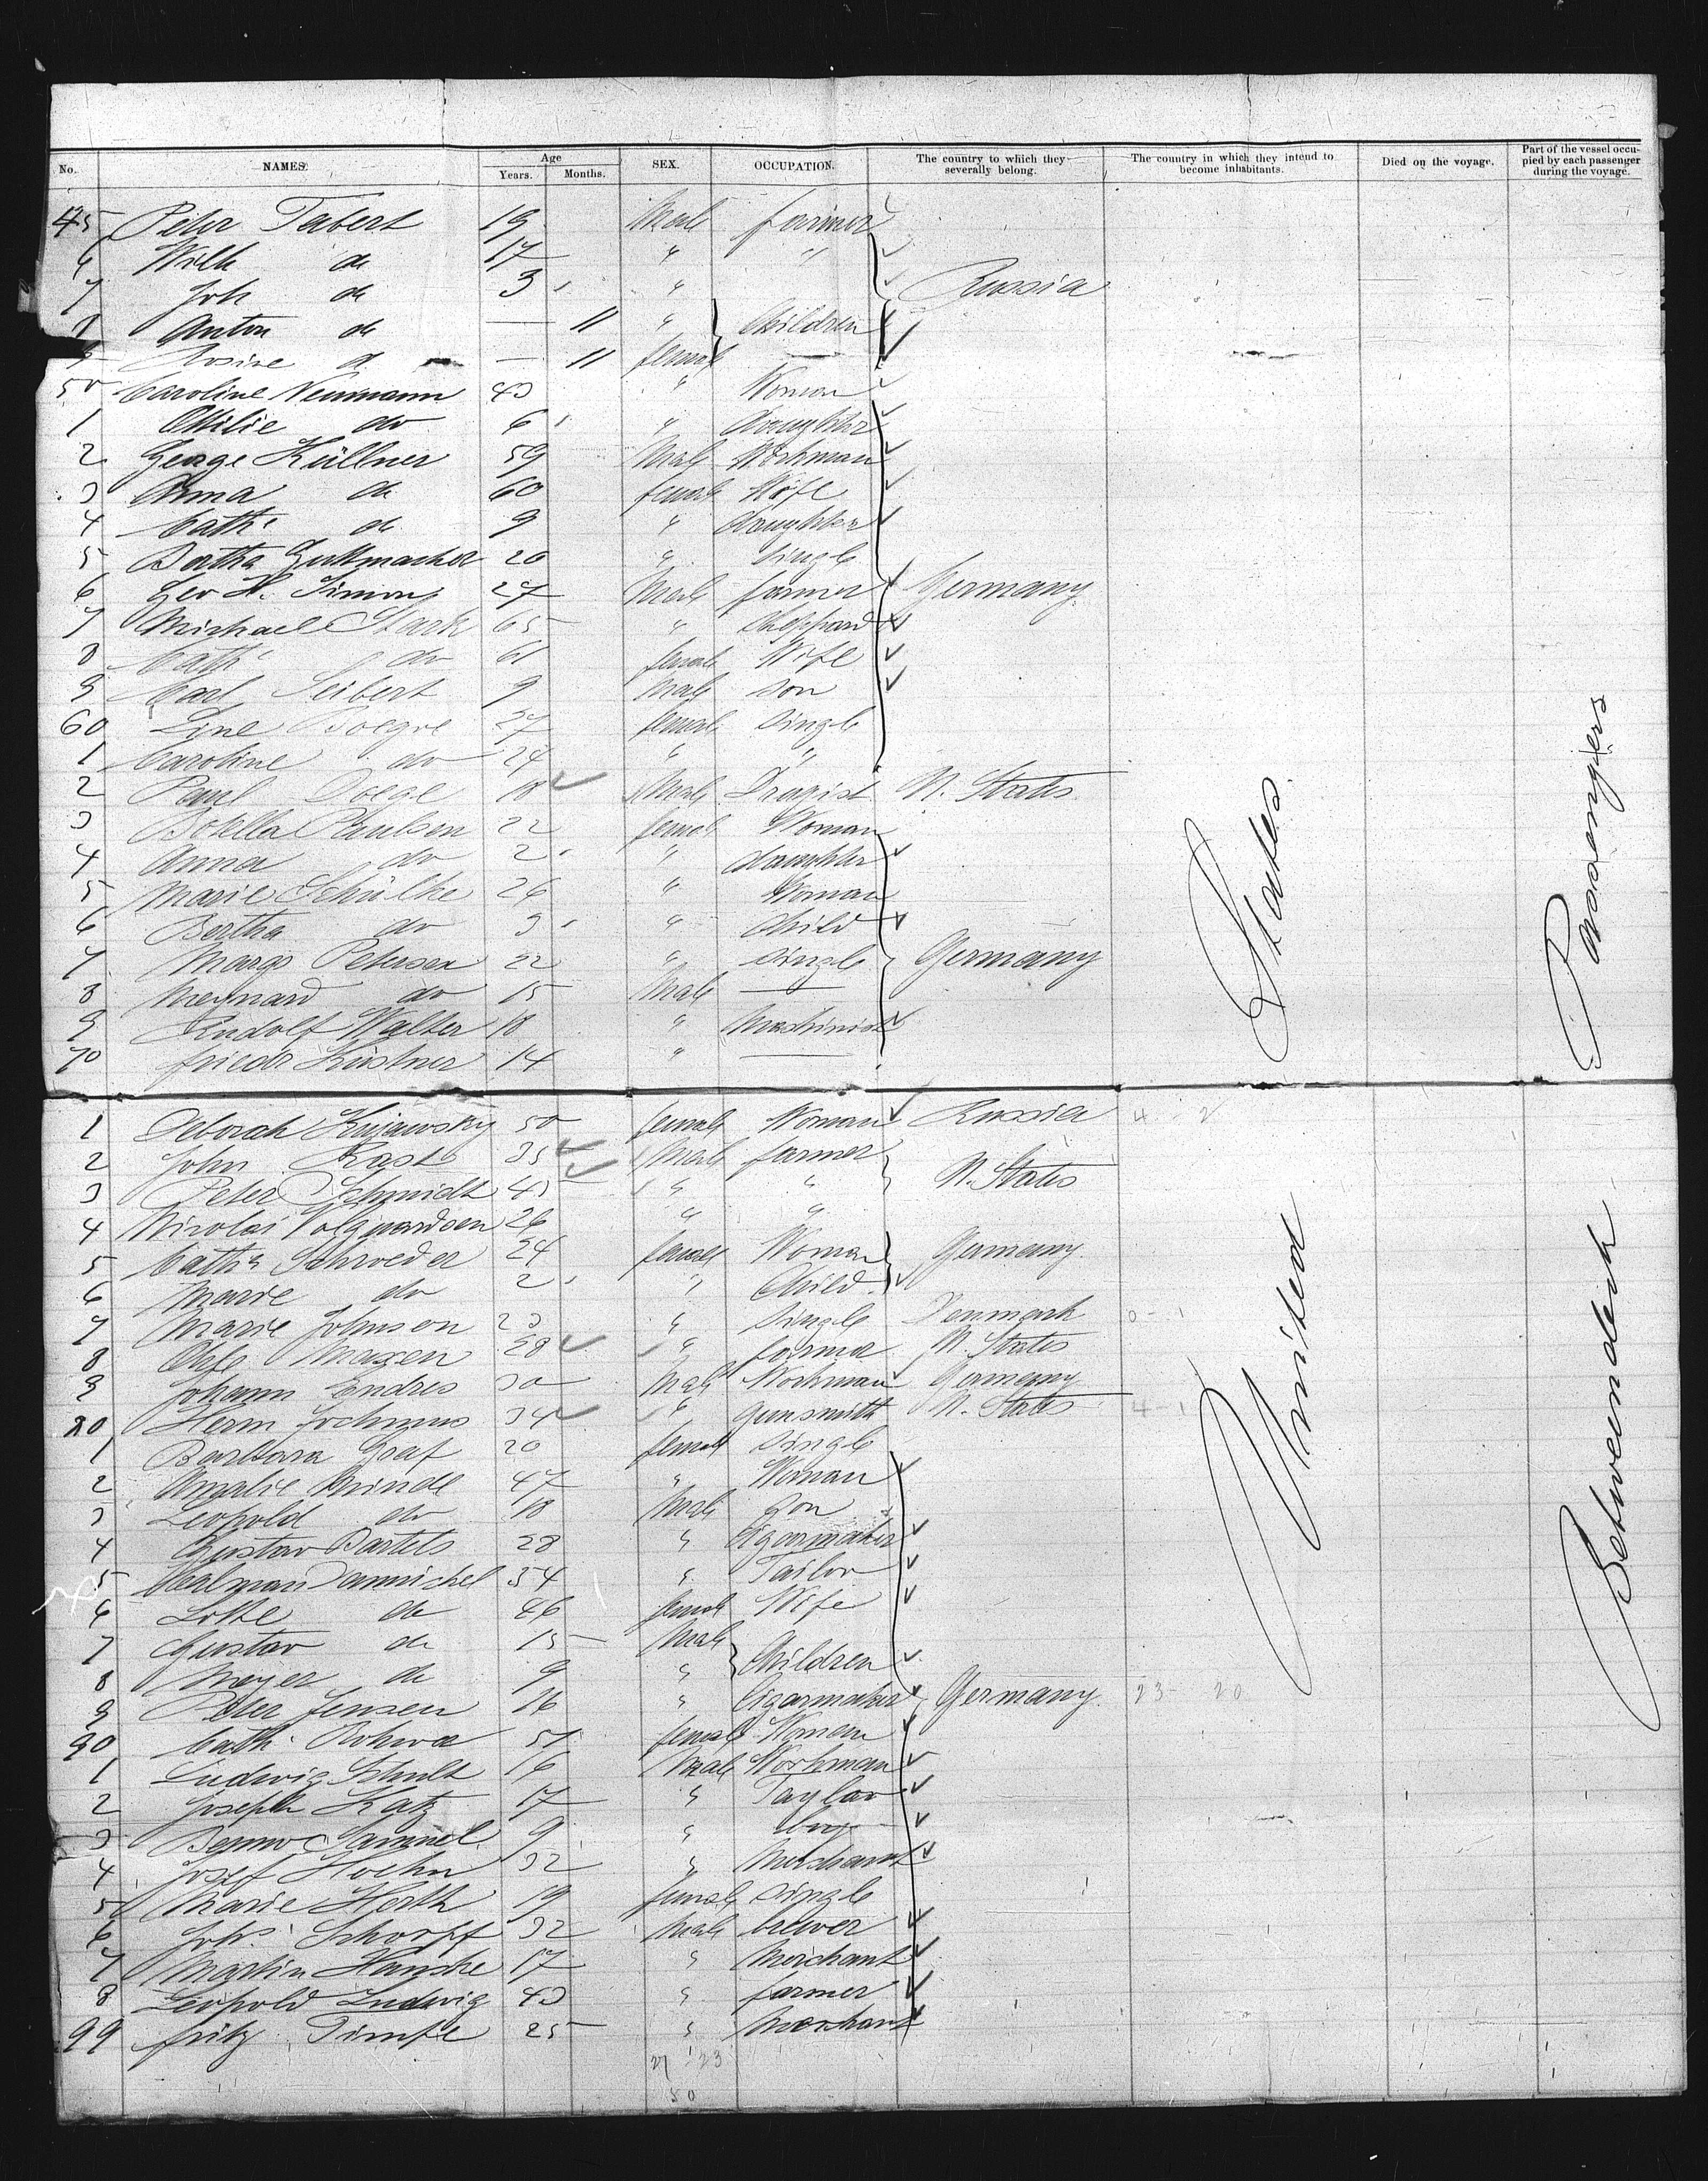 No. NAMES. Age Years. Months. SEX. OCCUPATION. The country to which they severally belong. The country in which they intend to become inhabitants. Died on the voyage. Part of the vessel occupied by each passenger during the voyage.
45 Peter Tabert 19 Male farmer
6 Wilh do 17 " "
7 Joh do 3 " Russia
8 Anton do — 11 " Children
9 Rosine d — 11 female —
50 Caroline Neumann 43 " Woman
1 Ottilie do 6 " daughter
2 George Küllner 59 Male Workman
3 Anna do 60 female Wife
4 Cath. do 9 " daughter
5 Bertha Guttmacher 20 " single
6 Geo H. Simony 27 Male farmer Germany
7 Michael Stark 65 " Sheppard
8 Cath. do 61 female Wife
9 Carl Seibert 9 Male son
60 Line 27 female single
1 Caroline do 24 " "
2 Paul 18 Male Dragist U. States
3 Botilla Paulsen 22 female Woman
4 Anna do 2 " daughter
5 Marie Schülke 26 " Woman
6 Bertha do 3 " Child
7 Margr Petersen 22 " single Germany
8 Meinard do 15 Male —
9 Rudolf Walter 18 " Machinist
70 friedr Küstner 14 " —
1 Deborah Kujawsky 50 female Woman Russia 4 - 2
2 John Rast 35 Male farmer
3 Peter Schmidt 43 " " U. States
4 Nicolai Volquardsen 26 " "
5 Cath. Schroeder 24 female Woman Germany.
6 Marie do 2 " Child
7 Marie Johnson 23 " single Denmark 0 - 1
8 Maxen 28 " farmer U. States
9 Johann Endres 30 Male Workman Germany
80 Herm Jochmus 34 " gunsmith U. States 4 - 1
1 Barbara Graf 20 female single
2 Amalie Minde 47 " Woman
3 Leopold do 18 Male son
4 Gustav Bartels 28 " Cigarmaker
5 54 " Tailor
6 Lotte do 46 female Wife
7 Gustav do 15 Male
8 Meyer do 9 " Children
9 Peter Jensen 16 " Cigarmaker Germany. 23 - 20
90 Cath. 51 female Woman
1 Ludwig Schult 16 Male Workman
2 Joseph Katz 17 " Taylor
3 Benno Samuel 9 " boy
4 Josef Hoehn 32 " Merchant
5 Marie Herth 19 female single
6 Joh. Schorff 32 Male brewer
7 Martin Hanske 17 " Merchant
8 Leopold Ludwig 43 " farmer
99 fritz Timpe 25 " Merchant
27 - 23
50
United States
Betweendeck Passengers